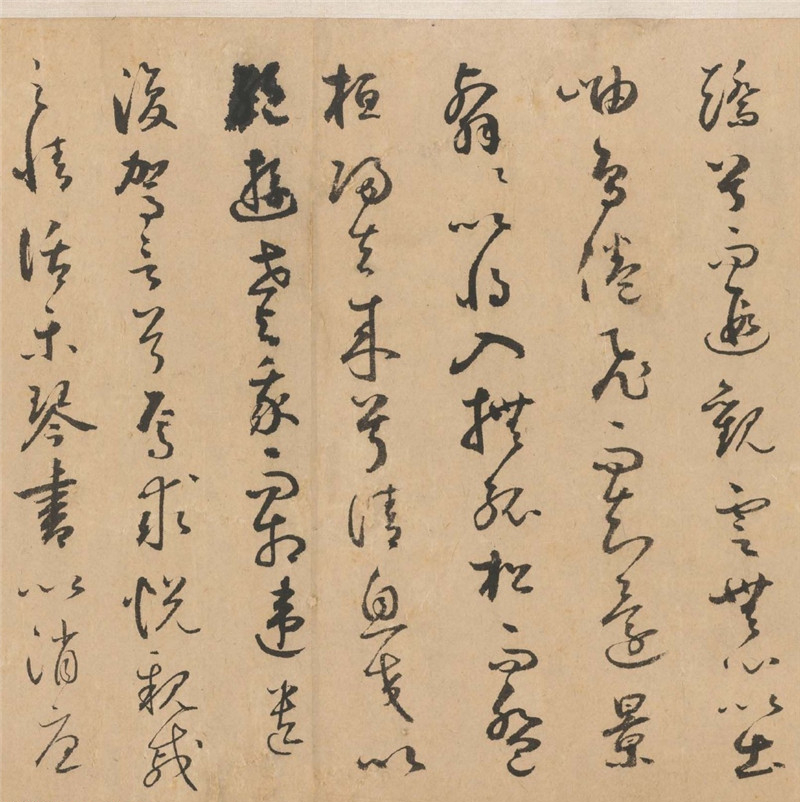 矯首而遐觀雲無心以出
岫鳥倦飛而知還景
翳翳以將入撫孤松而盤
桓歸去來兮請息交以
絕遊世與我而相違遺
復駕言兮焉求悅親戚
之情話樂琴書以消憂